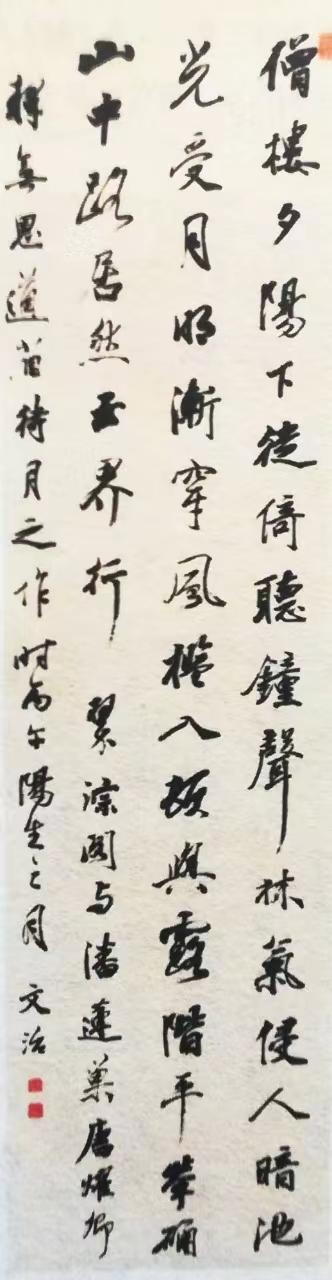 僧樓夕陽下徙倚聽鐘聲林氣侵人暗池
光受月明漸穿風檻入頓與露階平犖确
山中路居然玉界行 翠淙閣与潘蓮巢唐耀卿
釋無思道苗待月之作時丙午陽生之月 文治